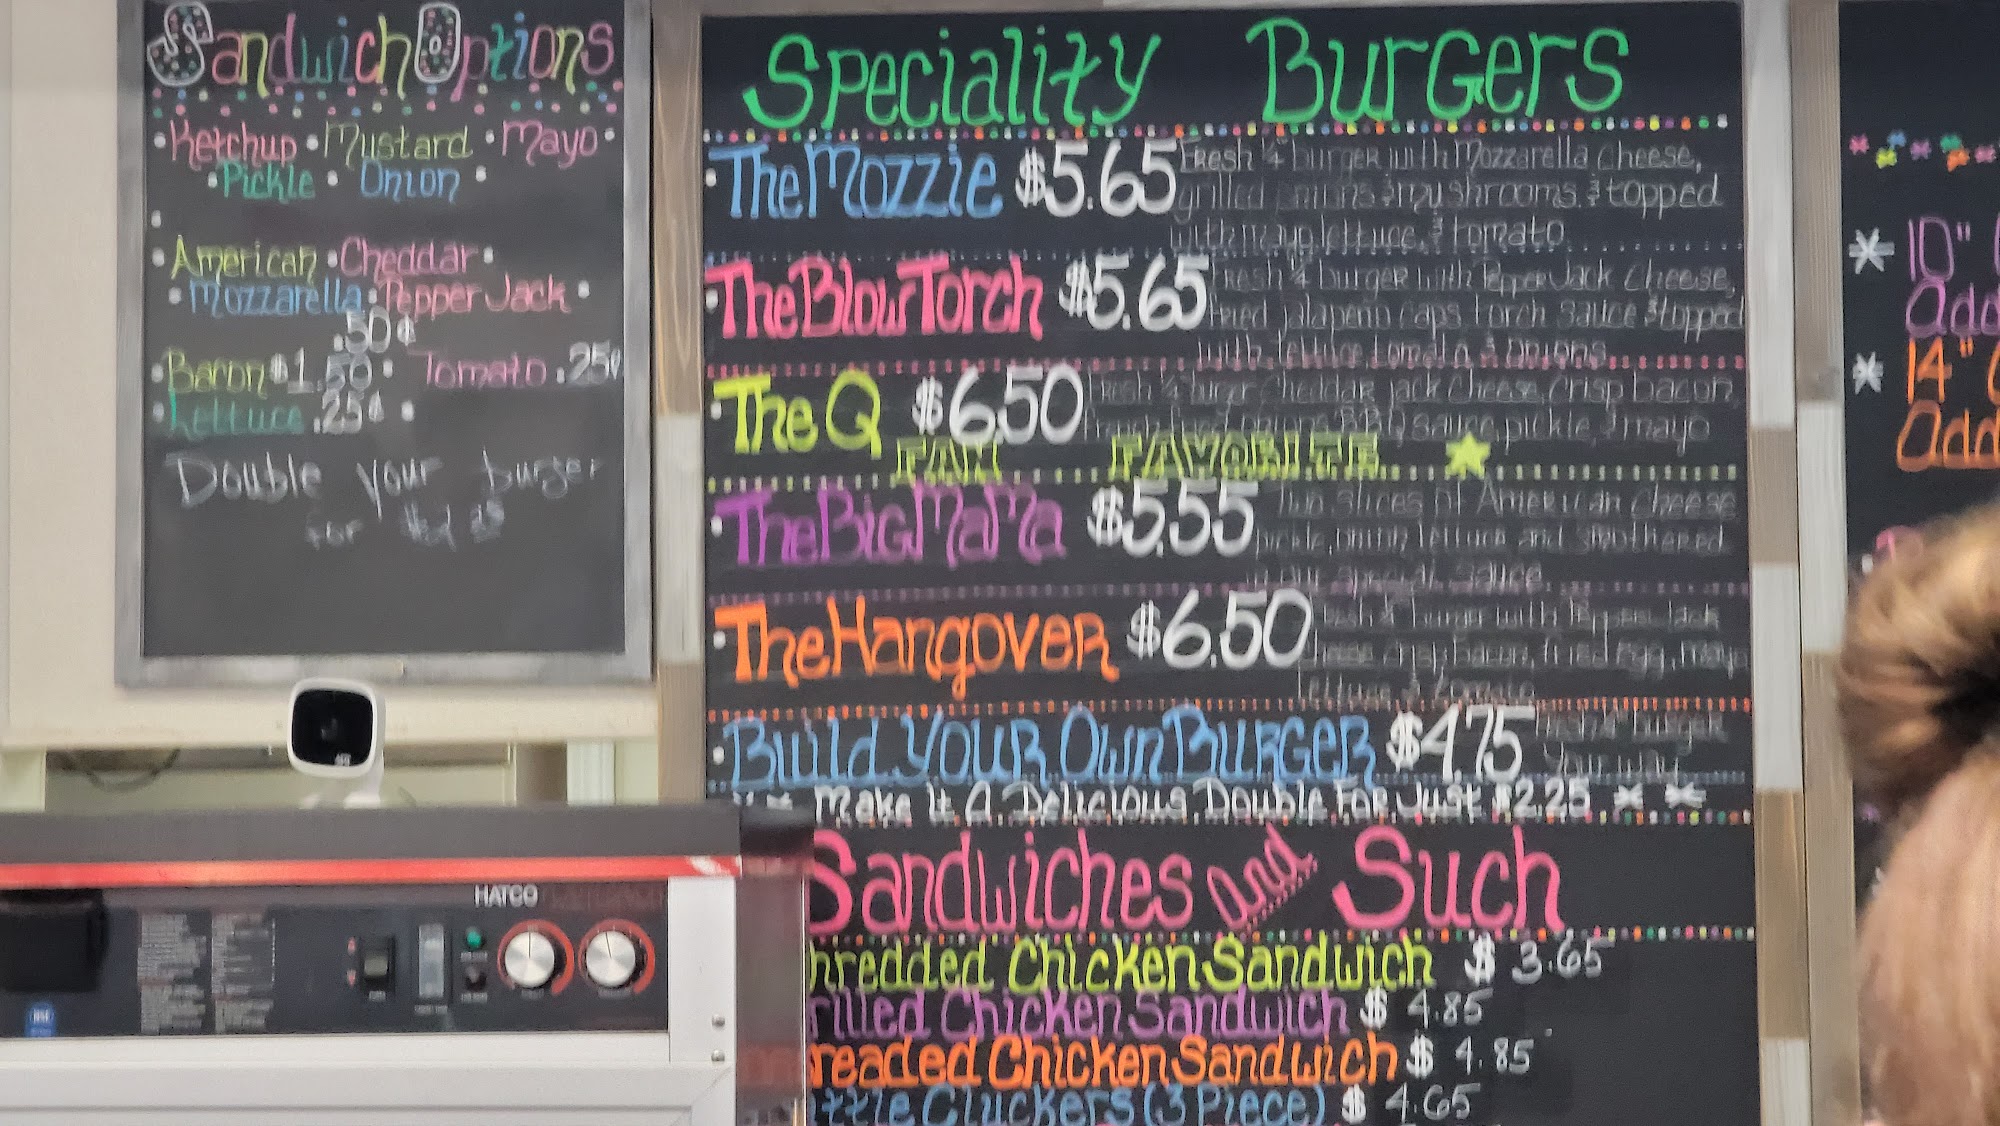 Sandwich Options
Ketchup • Mustard • Mayo •
• Pickle • Onion •
• American • Cheddar •
• Mozzarella • Pepper Jack •
.50¢
• Bacon $1.50 • Tomato .25¢
• Lettuce .25¢ •
Double your burger
for
Speciality Burgers
• The Mozzie $5.65 Fresh ¼ burger with Mozzarella Cheese,
grilled onions & mushrooms & topped
with mayo lettuce, & tomato
• The Blow Torch $5.65 Fresh ¼ burger with Pepper Jack Cheese,
fried jalapeno caps torch sauce & topped
with lettuce tomato & onions
• The Q $6.50 Fresh ¼ burger Cheddar jack Cheese, Crisp bacon,
onions BBQ sauce, pickle, & mayo
FAN FAVORITE
• The Big Mama $5.55 Two slices of American Cheese
pickle, onion lettuce and smothered
in our special sauce
• The Hangover $6.50 Fresh ¼ burger with Pepper Jack
Cheese Crisp bacon, fried egg, mayo
lettuce & tomato
• Build Your Own Burger $4.75 Fresh ¼ burger
your way
* * Make It A Delicious Double For Just $2.25 * *
Sandwiches and Such
hredded Chicken Sandwich $3.65
rilled Chicken Sandwich $4.85
readed Chicken Sandwich $4.85
ittle Cluckers (3 Piece) $4.65
* 10"
Add
* 14"
Add
HATCO